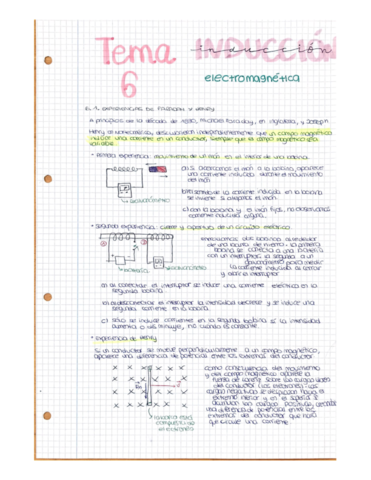 Tema 6
inducción
INDUCCIÓN
electromagnética
6.1. EXPERIENCIAS DE FARADAY Y HENRY
A principios de la década de 1830, Michael Faraday, en Inglaterra, y Joseph
Henry en Norteamérica, descubrieron independientemente que un campo magnético
induce una corriente en un conductor, siempre que el campo magnético sea
variable.
• Primera experiencia: movimiento de un imán en el interior de una bobina.
a) Si acercamos el imán a la bobina, aparece
una corriente inducida durante el movimiento
del imán.
b) el sentido de la corriente inducida en la bobina
se invierte si alejamos el imán.
c) con la bobina y el imán fijos, no observamos
corriente inducida alguna.
galvanómetro
• Segunda experiencia: cierre y apertura de un circuito eléctrico.
de una
bobina se conecta a una batería
con un interruptor, la segunda a un
galvanómetro para medir
la corriente inducida al cerrar
y abrir el interruptor
batería
galvanómetro
a) al conectar el interruptor se induce una corriente eléctrica en la
segunda bobina.
b) al desconectar el interruptor la intensidad decrece y se induce una
segunda corriente en la bobina.
c) sólo se induce corriente en la segunda bobina si la intensidad
aumenta o disminuye, no cuando es constante.
• Experiencia de Henry
Si un conductor se mueve perpendicularmente a un campo magnético,
aparece una diferencia de potencial entre los extremos del conductor
como consecuencia del movimiento
y del campo magnético aparece la
fuerza de Lorentz sobre las cargas libres
del conductor (los electrones). Las
cargas negativas se desplazan hacia el
extremo inferior y en el superior se
acumulan las cargas positivas, creando
una diferencia de potencial entre los
extremos del conductor que hará
que circule una corriente.